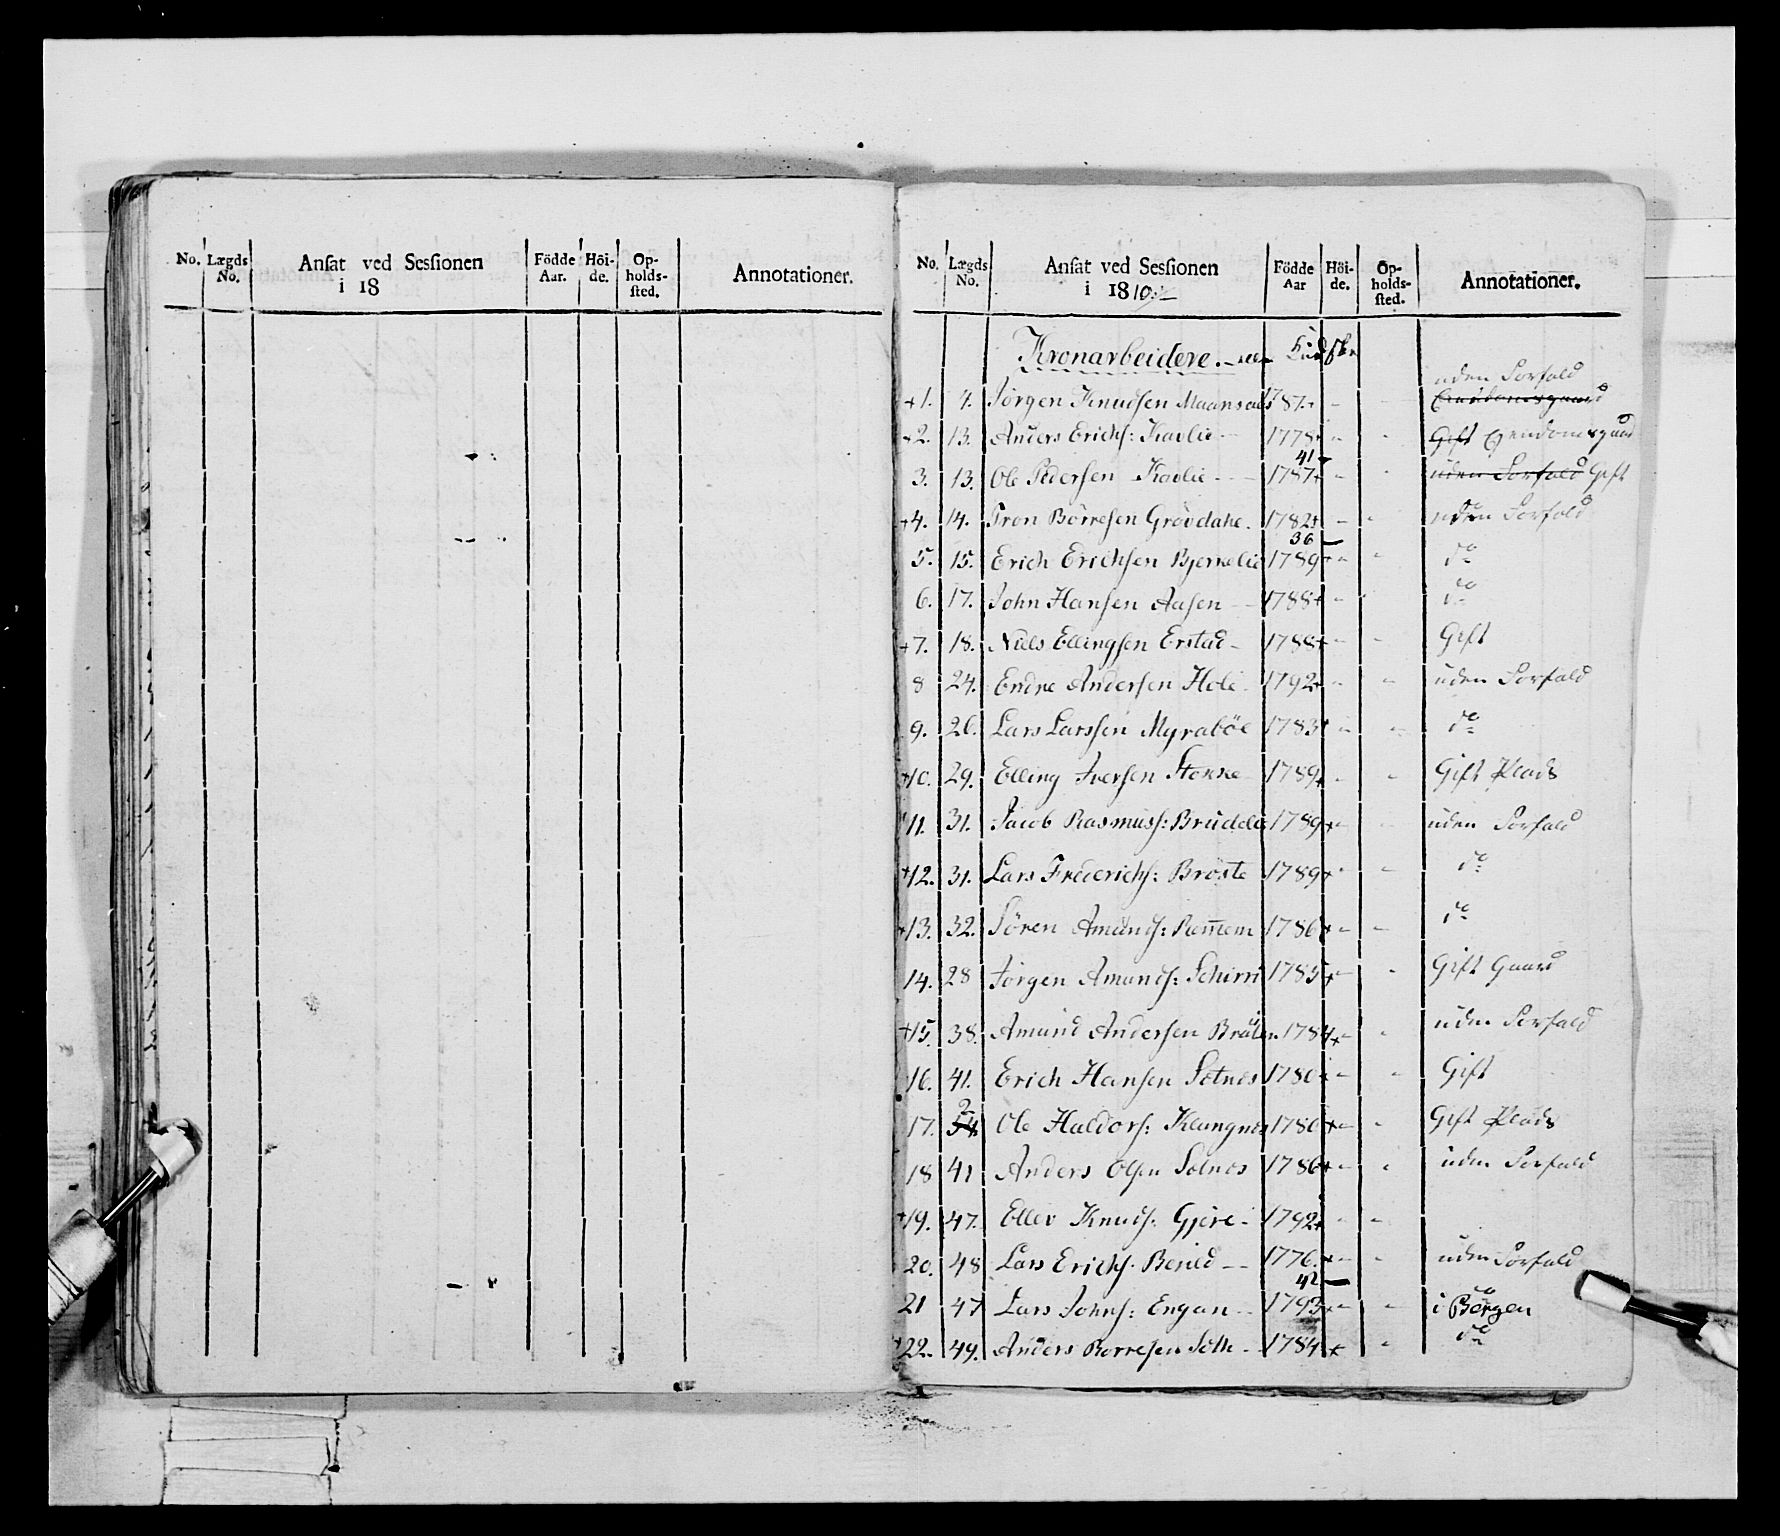 No. Lægds No. Ansat ved Sessionen i 18 Födde Aar. Höi-de. Op-holds-sted. Annotationer.
No. Lægds No. Ansat ved Sessionen i 1810 Födde Aar Höi-de. Op-holds-sted. Annotationer.
Kronarbeidere.
uden Forfald
+1. 4. Jörgen Knudsen 1787+ - -
+2. 13. Anders Erichs: Kavlie 1778+ - - Gift Ejendomsgaard
41
3. 13. Ole Pedersen Kavlie - - 1787+ - - uden Forfald Gift
+4. 14. Tron Börresen Grövdahe. 1782+ - - uden Forfald
36
5. 15. Erich Erichsen Bjermelie 1789+ - - do
6. 17. John Hansen Aasen - 1788+ - do
+7. 18. Niels Ellingsen Erstad - 1788+ - - Gift
8 24. Endre Andersen Hole - 1792+ - - uden Forfald
9. 26. Lars Larssen Myraböe 1783+ - - do
+10. 29. Elling Iversen Stokke 1789+ - - Gift Plads
11. 31. Jacob Rasmuss: 1789+ - - uden Forfald
+12. 31. Lars Frederichs: Broste 1789+ - - do
+13. 32. Sören Amunds: Rem̅em 1786+ - - do
14. 28 Jörgen Amunds: Schirri 1785+ - - Gift Gaard
+15. 38. Amund Andersen 1784+ - - uden Forfald
16. 41. Erich Hansen Solnes 1780+ - - Gift
2
17. 54. Ole Haldors: Klungnes 1780+ - - Gift Plads
18 41 Anders Olsen Solnes 1786+ - - uden Forfald
+19. 47. Ellev Knuds: Gjere - 1792+ - -
20. 48 Lars Erichs. Berild - - 1776.+ - - uden Forfald
42 do
21 47 Lars Johns: Engan - - 1793+ - - i Bergen
+22. 49. Anders Borresen - 1784+ - do